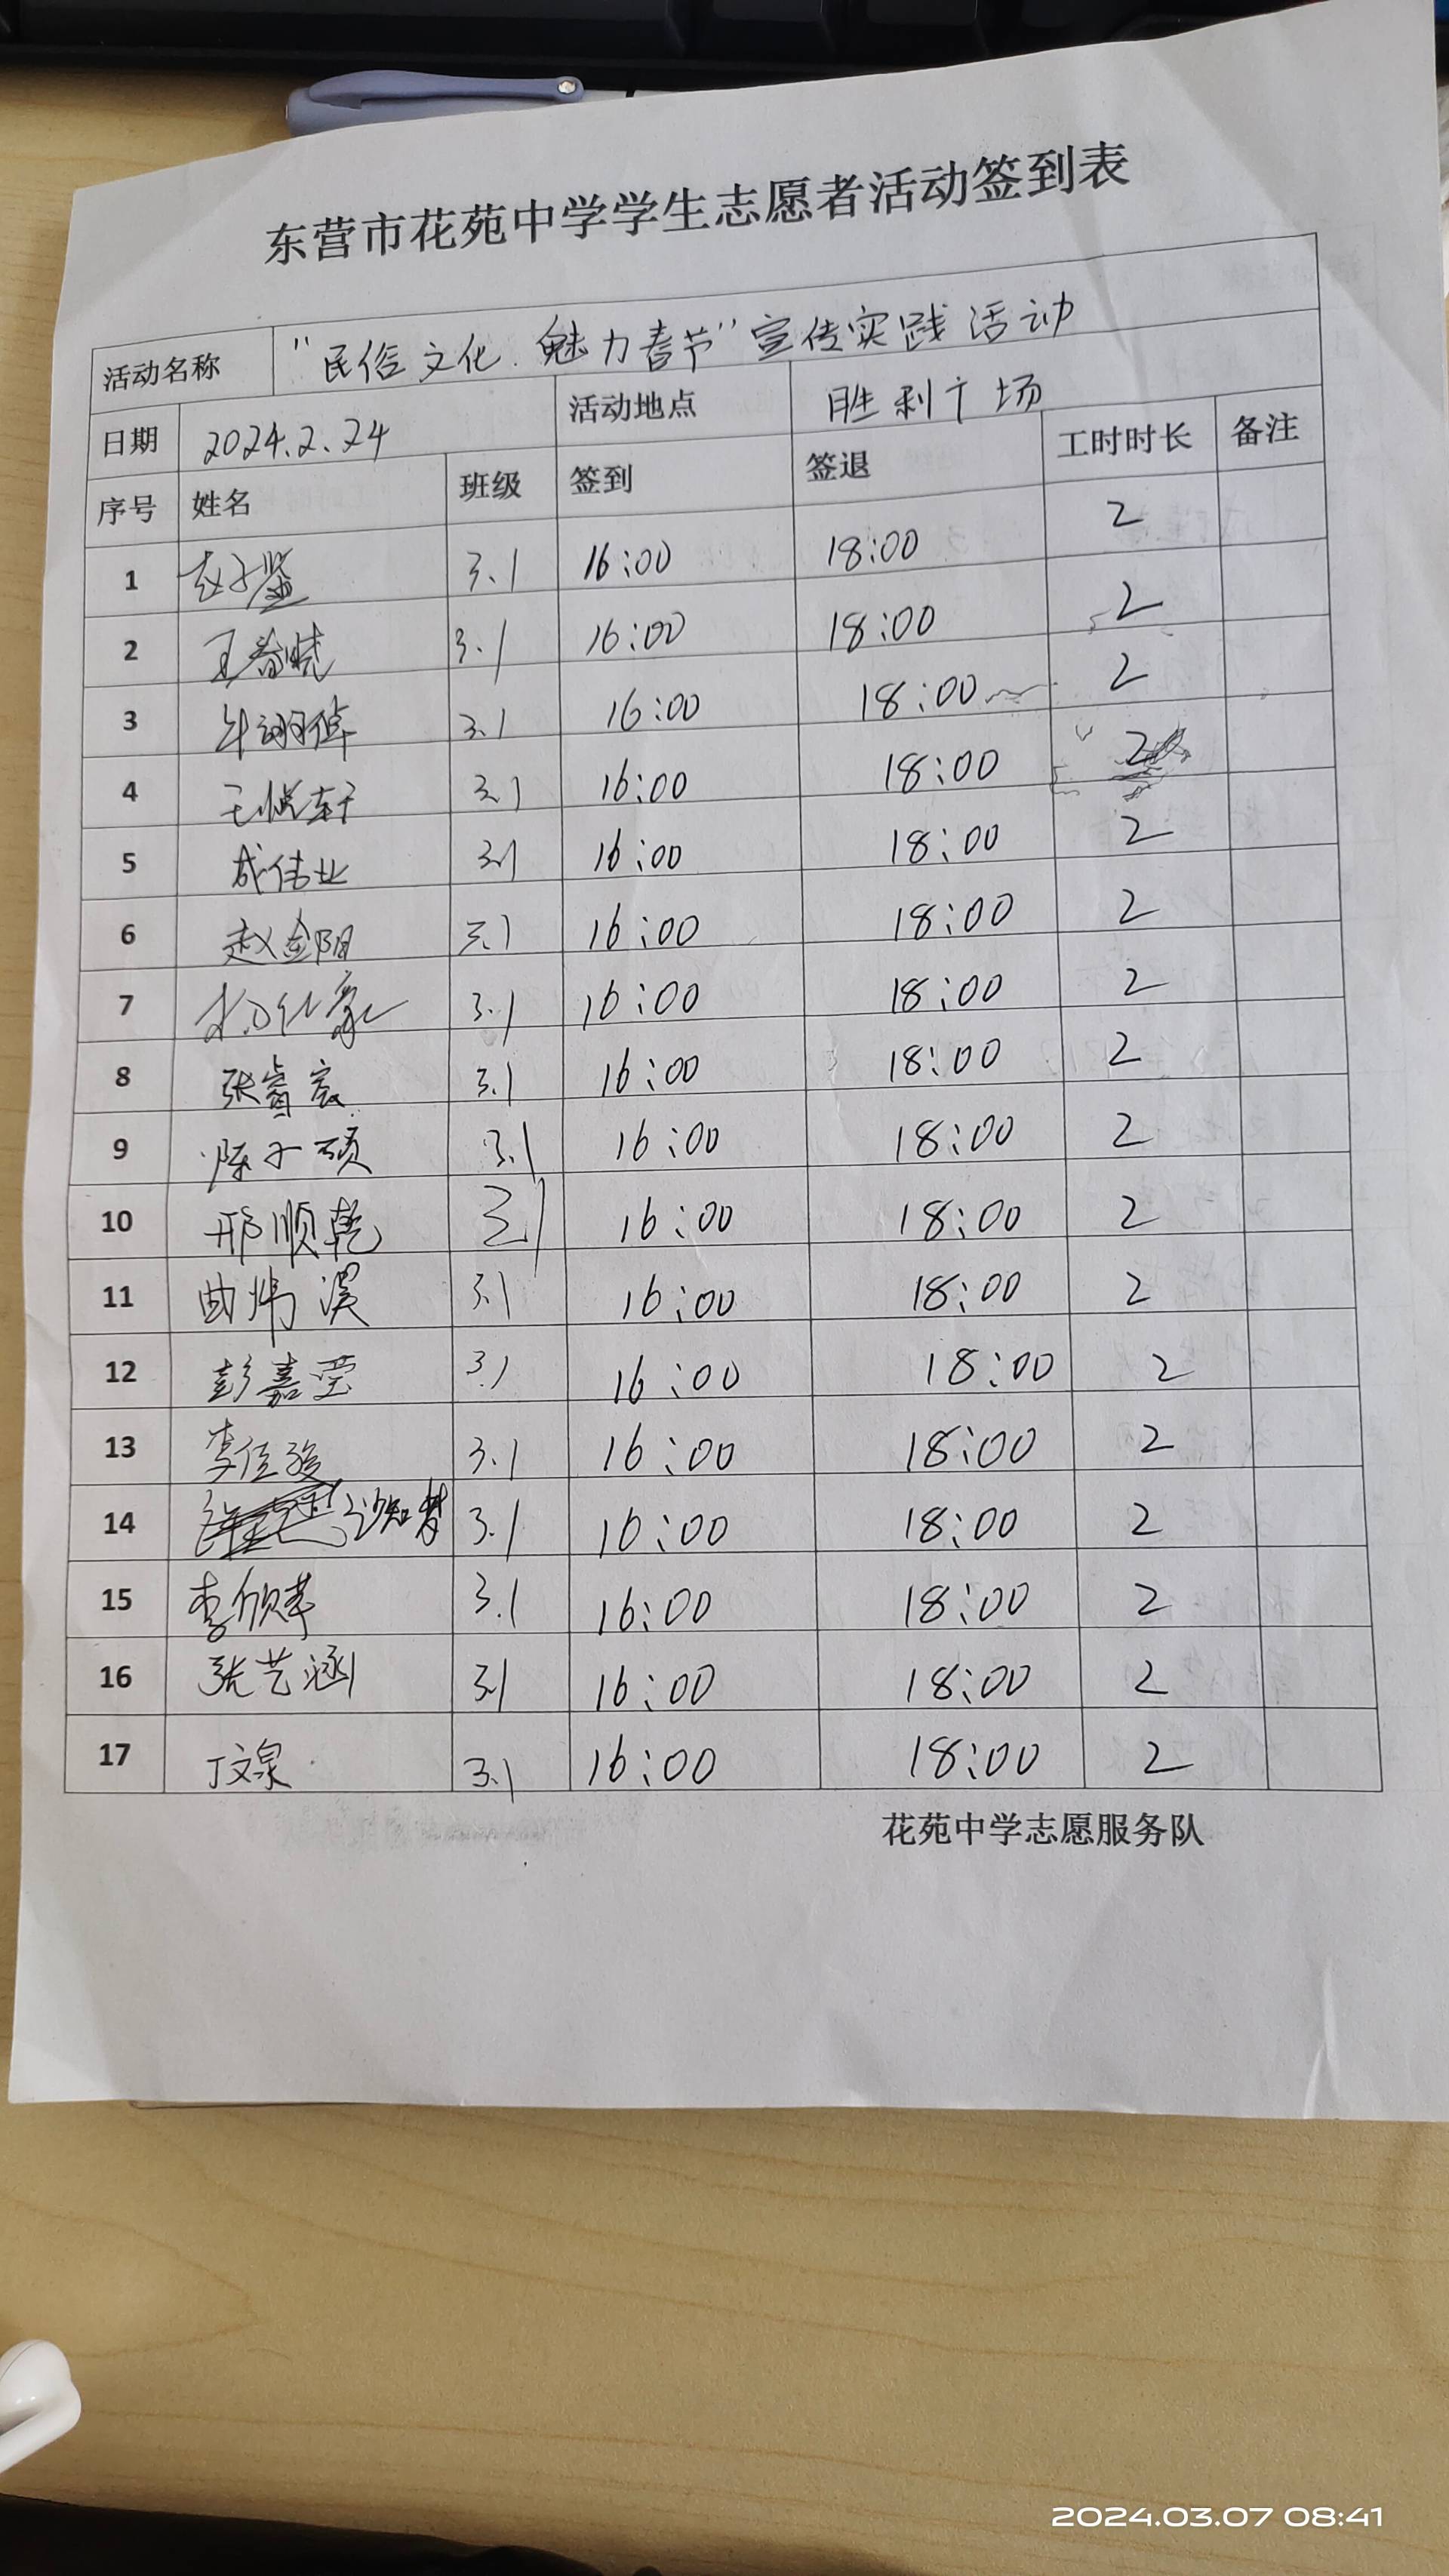 东营市花苑中学学生志愿者活动签到表
活动名称 "民俗文化.魅力春节"宣传实践活动
日期 2024.2.24 活动地点 胜利广场
序号 姓名 班级 签到 签退 工时时长 备注
1 3.1 16:00 18:00 2
2 王春晓 3.1 16:00 18:00 2
3 牟翊倬 3.1 16:00 18:00 2
4 王悦轩 3.1 16:00 18:00 2
5 成伟业 3.1 16:00 18:00 2
6 赵金阳 3.1 16:00 18:00 2
7 3.1 16:00 18:00 2
8 张睿宸 3.1 16:00 18:00 2
9 陈子硕 3.1 16:00 18:00 2
10 邢顺乾 3.1 16:00 18:00 2
11 曲炜淏 3.1 16:00 18:00 2
12 彭嘉莹 3.1 16:00 18:00 2
13 李佳骏 3.1 16:00 18:00 2
14 3.1 16:00 18:00 2
15 3.1 16:00 18:00 2
16 张艺涵 3.1 16:00 18:00 2
17 丁文泉 3.1 16:00 18:00 2
花苑中学志愿服务队
2024.03.07 08:41